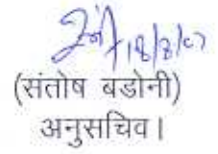 18/8/07
(संतोष बडोनी)
अनुसचिव।